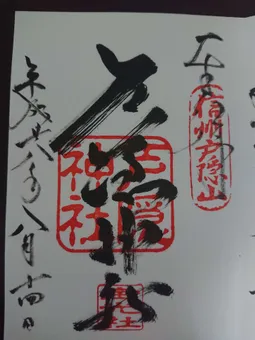 信州戸隠山
戸隠神社
戸隠
神社
平成廿八年八月十四日